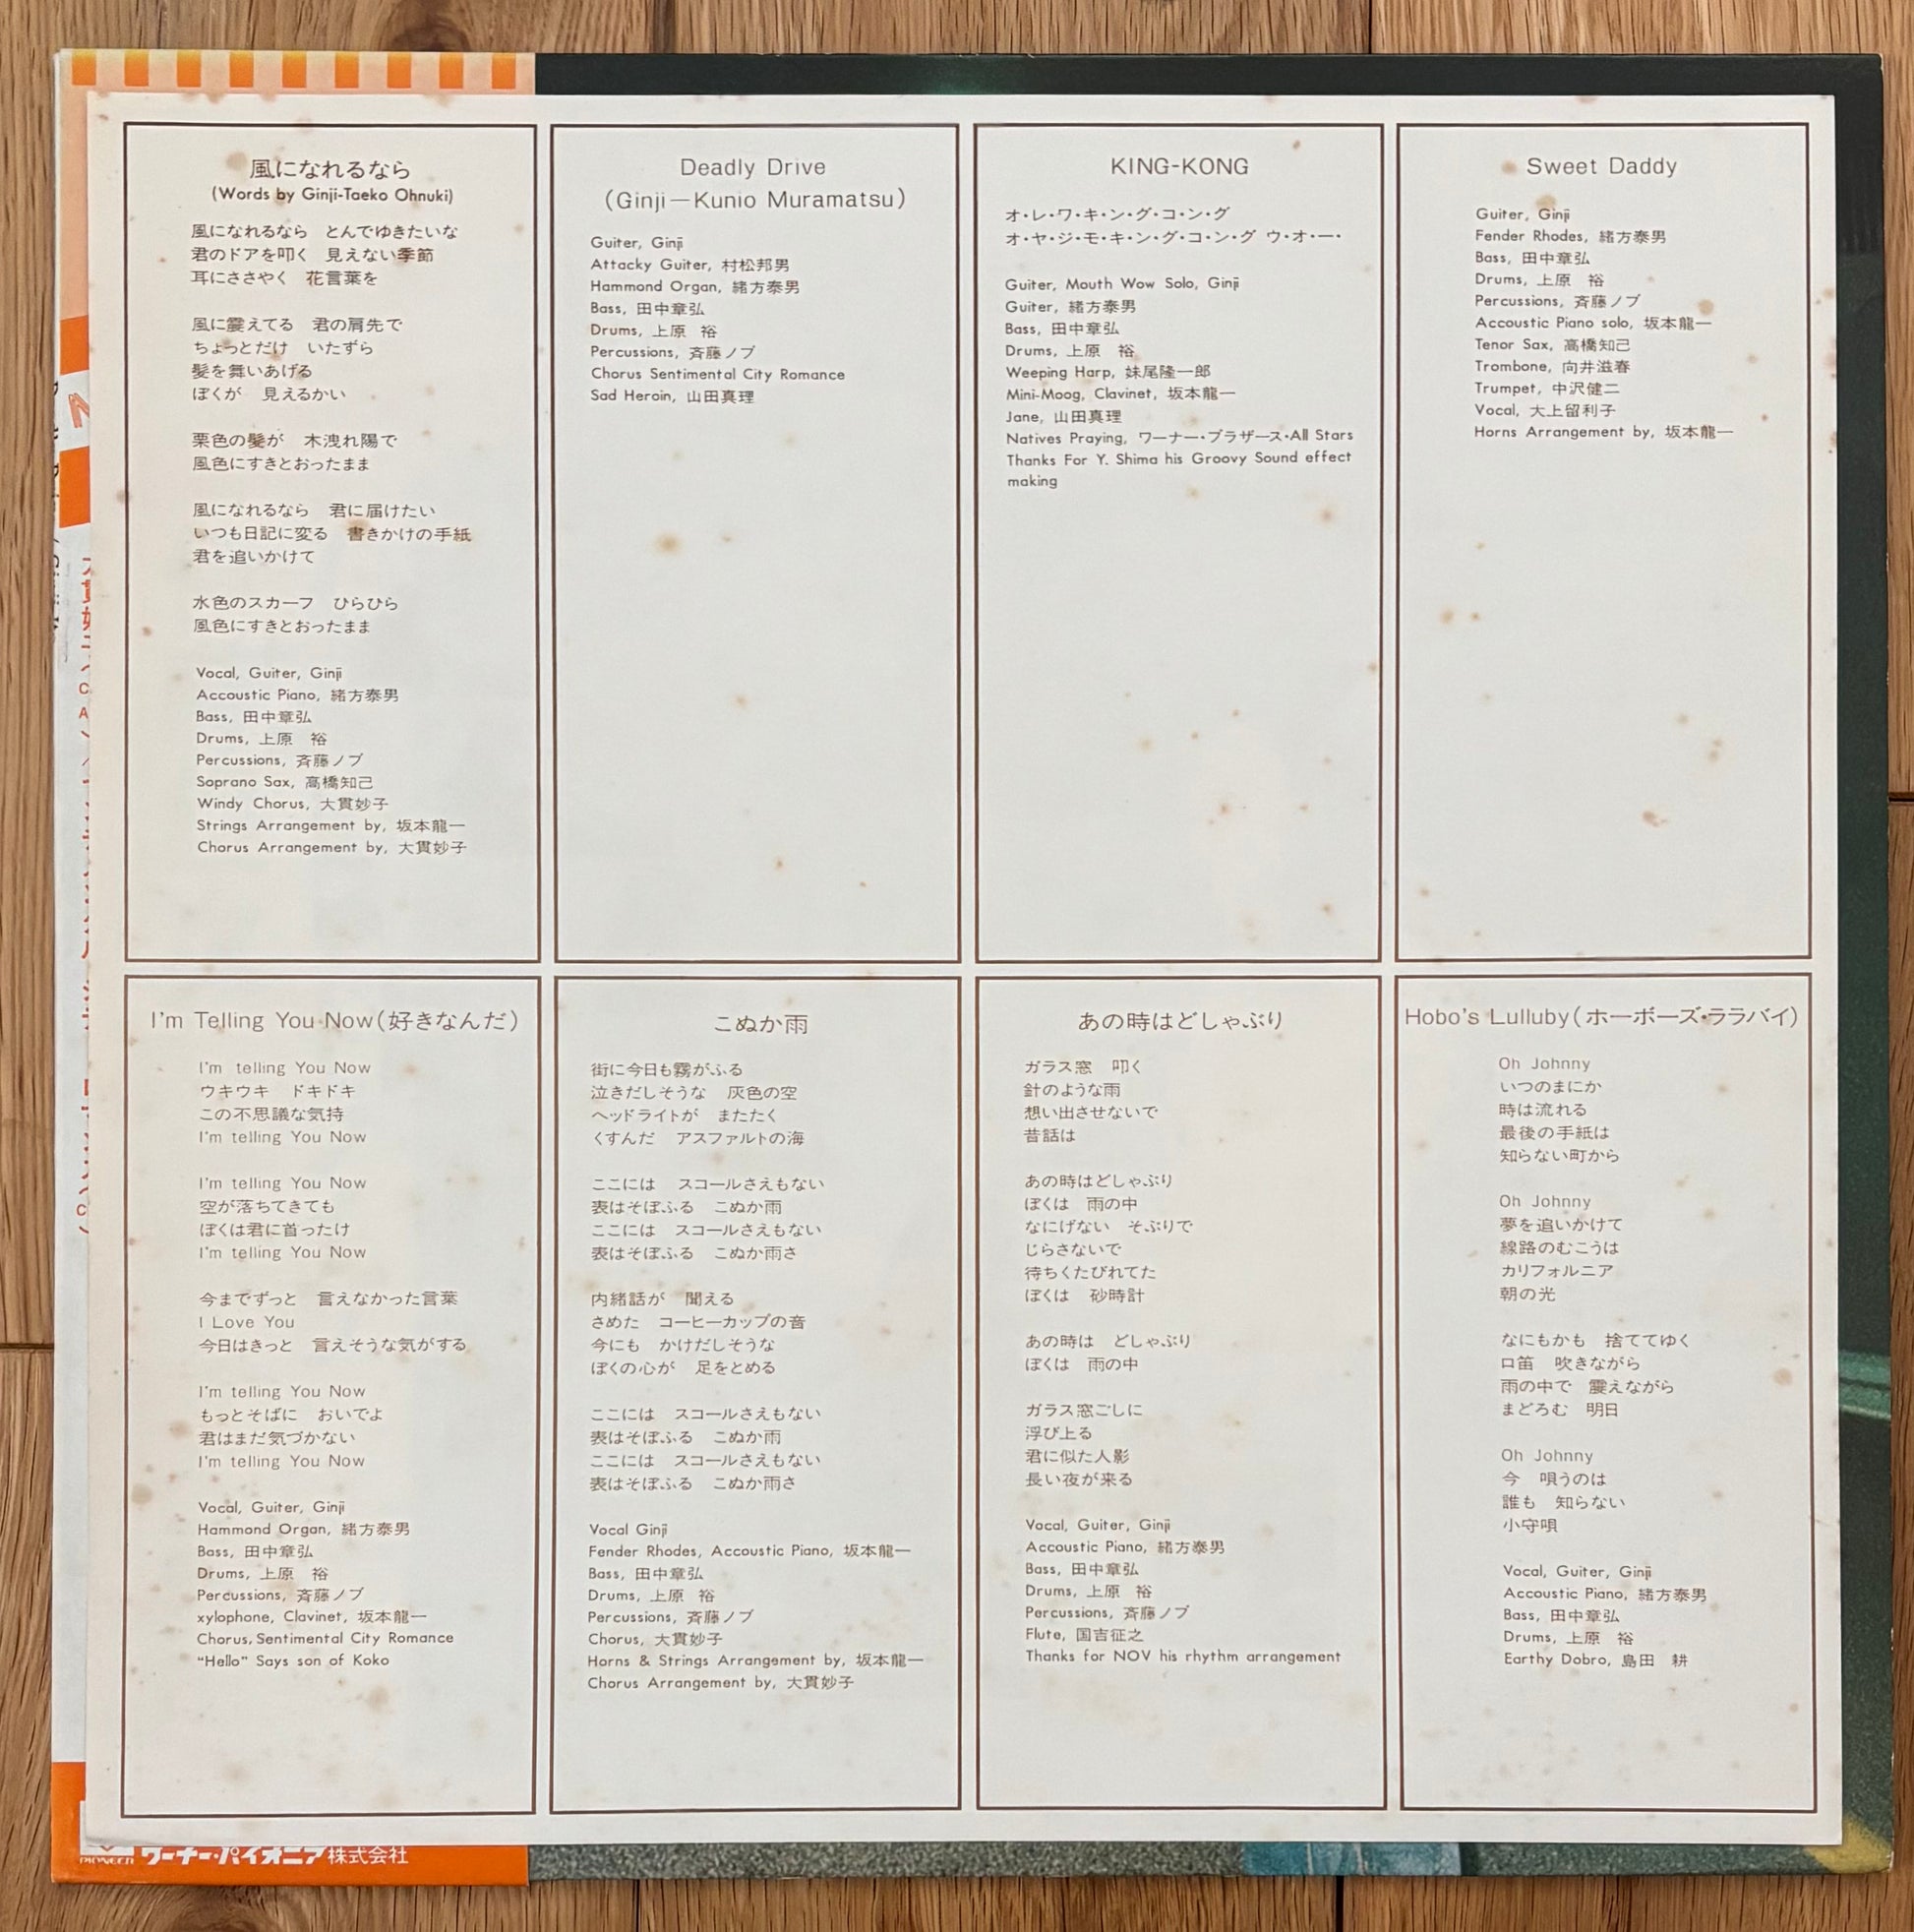 風になれるなら
(Words by Ginji-Taeko Ohnuki)
風になれるなら　とんでゆきたいな
君のドアを叩く　見えない季節
耳にささやく　花言葉を
風に震えてる　君の肩先で
ちょっとだけ　いたずら
髪を舞いあげる
ぼくが　見えるかい
栗色の髪が　木洩れ陽で
風色にすきとおったまま
風になれるなら　君に届けたい
いつも日記に変る　書きかけの手紙
君を追いかけて
水色のスカーフ　ひらひら
風色にすきとおったまま
Vocal, Guiter, Ginji
Accoustic Piano, 緒方泰男
Bass, 田中章弘
Drums, 上原　裕
Percussions, 斉藤ノブ
Soprano Sax, 高橋知己
Windy Chorus, 大貫妙子
Strings Arrangement by, 坂本龍一
Chorus Arrangement by, 大貫妙子
Deadly Drive
(Ginji—Kunio Muramatsu)
Guiter, Ginji
Attacky Guiter, 村松邦男
Hammond Organ, 緒方泰男
Bass, 田中章弘
Drums, 上原　裕
Percussions, 斉藤ノブ
Chorus Sentimental City Romance
Sad Heroin, 山田真理
KING-KONG
オ・レ・ワ・キ・ン・グ・コ・ン・グ
オ・ヤ・ジ・モ・キ・ン・グ・コ・ン・グ ウ・オ・ー・
Guiter, Mouth Wow Solo, Ginji
Guiter, 緒方泰男
Bass, 田中章弘
Drums, 上原　裕
Weeping Harp, 妹尾隆一郎
Mini-Moog, Clavinet, 坂本龍一
Jane, 山田真理
Natives Praying, ワーナー・ブラザース・All Stars
Thanks For Y. Shima his Groovy Sound effect
making
Sweet Daddy
Guiter, Ginji
Fender Rhodes, 緒方泰男
Bass, 田中章弘
Drums, 上原　裕
Percussions, 斉藤ノブ
Accoustic Piano solo, 坂本龍一
Tenor Sax, 高橋知己
Trombone, 向井滋春
Trumpet, 中沢健二
Vocal, 大上留利子
Horns Arrangement by, 坂本龍一
I'm Telling You Now(好きなんだ)
I'm telling You Now
ウキウキ　ドキドキ
この不思議な気持
I'm telling You Now
I'm telling You Now
空が落ちてきても
ぼくは君に首ったけ
I'm telling You Now
今までずっと　言えなかった言葉
I Love You
今日はきっと　言えそうな気がする
I'm telling You Now
もっとそばに　おいでよ
君はまだ気づかない
I'm telling You Now
Vocal, Guiter, Ginji
Hammond Organ, 緒方泰男
Bass, 田中章弘
Drums, 上原　裕
Percussions, 斉藤ノブ
xylophone, Clavinet, 坂本龍一
Chorus, Sentimental City Romance
"Hello" Says son of Koko
こぬか雨
街に今日も霧がふる
泣きだしそうな　灰色の空
ヘッドライトが　またたく
くすんだ　アスファルトの海
ここには　スコールさえもない
表はそぼふる　こぬか雨
ここには　スコールさえもない
表はそぼふる　こぬか雨さ
内緒話が　聞える
さめた　コーヒーカップの音
今にも　かけだしそうな
ぼくの心が　足をとめる
ここには　スコールさえもない
表はそぼふる　こぬか雨
ここには　スコールさえもない
表はそぼふる　こぬか雨さ
Vocal Ginji
Fender Rhodes, Accoustic Piano, 坂本龍一
Bass, 田中章弘
Drums, 上原　裕
Percussions, 斉藤ノブ
Chorus, 大貫妙子
Horns & Strings Arrangement by, 坂本龍一
Chorus Arrangement by, 大貫妙子
あの時はどしゃぶり
ガラス窓　叩く
針のような雨
想い出させないで
昔話は
あの時はどしゃぶり
ぼくは　雨の中
なにげない　そぶりで
じらさないで
待ちくたびれてた
ぼくは　砂時計
あの時は　どしゃぶり
ぼくは　雨の中
ガラス窓ごしに
浮び上る
君に似た人影
長い夜が来る
Vocal, Guiter, Ginji
Accoustic Piano, 緒方泰男
Bass, 田中章弘
Drums, 上原　裕
Percussions, 斉藤ノブ
Flute, 国吉征之
Thanks for NOV his rhythm arrangement
Hobo's Lulluby(ホーボーズ・ララバイ)
Oh Johnny
いつのまにか
時は流れる
最後の手紙は
知らない町から
Oh Johnny
夢を追いかけて
線路のむこうは
カリフォルニア
朝の光
なにもかも　捨ててゆく
口笛　吹きながら
雨の中で　震えながら
まどろむ　明日
Oh Johnny
今　唄うのは
誰も　知らない
小守唄
Vocal, Guiter, Ginji
Accoustic Piano, 緒方泰男
Bass, 田中章弘
Drums, 上原　裕
Earthy Dobro, 島田　耕
PIONEER ワーナー・パイオニア株式会社